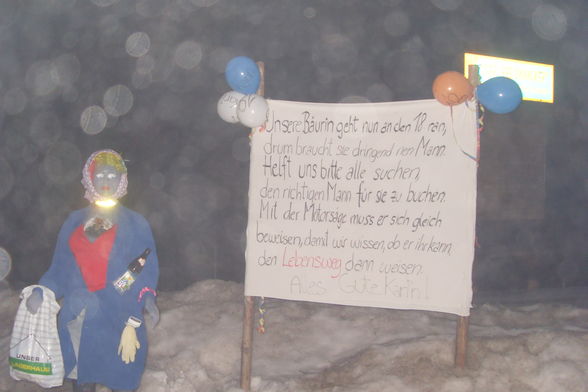 Unsere Bäurin geht nun an den 18 ran,
drum braucht sie dringend nen Mann.
Helft uns bitte alle suchen,
den richtigen Mann für sie zu buchen.
Mit der Motorsäge muss er sich gleich
beweisen, damit wir wissen, ob er ihr kann
den Lebensweg dann weisen.
Alles Gute Karin!
UNSER
LAGERHAUS